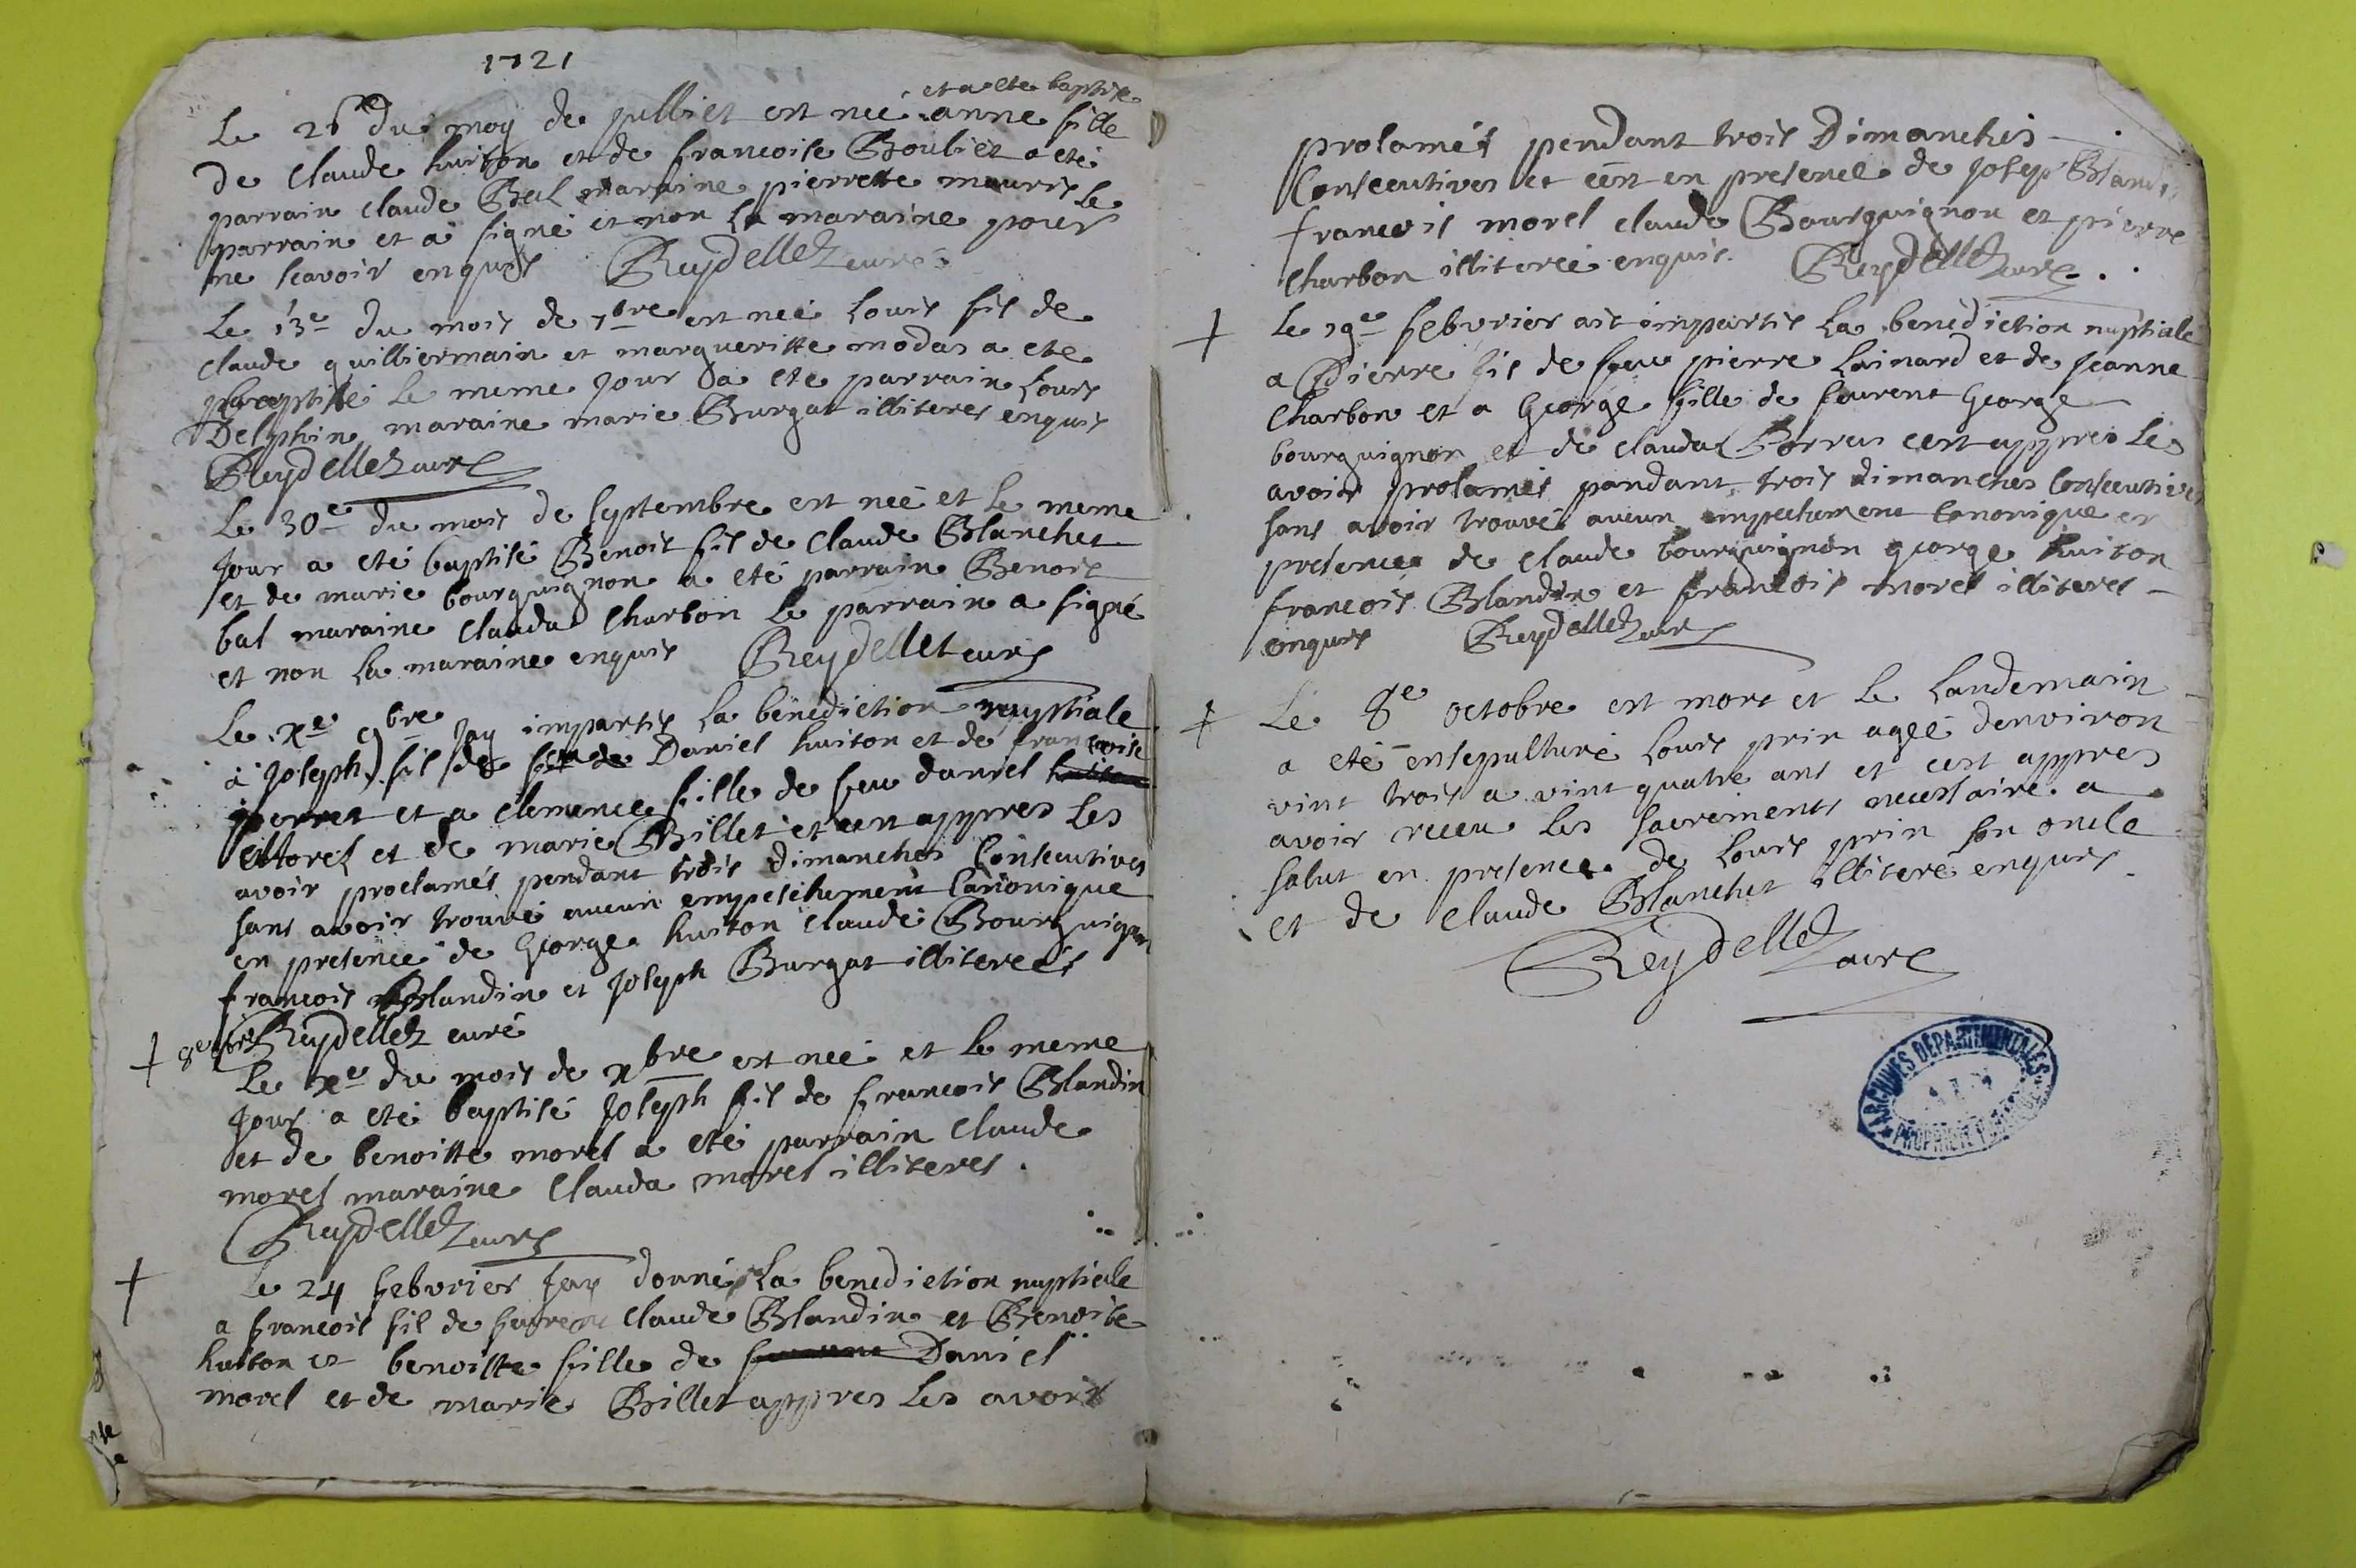 1721
et a ete baptise
Le 26e du moy de julliet est neé anne fille
de Claude huiton et de francoise Bouliet a eté
parrain claude Bal maraine pierrette mauris Le
parrain et a signé et non La maraine pour
ne scavoir enquis Reydellet curé
Le 13e du mois de 7bre est neé Louis fil de
claude guilliermain et margueritte modas a ete
baptisé Le meme Jour a eté parrain Louis
Delphin maraine marie Burgat illiteres enquis
Reydellet curé
Le 30e du mois de septembre est neé et Le meme
Jour a eté baptisé Benoit fil de Claude Blanchet
et de marie bourguignon a eté parrain Benoit
bal maraine Clauda Charbon Le parrain a signé
et non La maraine enquis Reydellet curé
Le xe 9bre Jay impartis La benediction nuptiale
à Joseph fil de feu de Daniel huiton et de francoise
perret et a clemence fille de feu daniel huiton
Morel et de marie Billet et cest appres Les
avoir proclamés pendant trois dimanches Consecutives
sans avoir trouvé aucun empeschement Canonique
en presence de George huiton Claude Bourguignon
francois Blandin et Joseph Burgat illitereés
Reydellet curé
+ 8e
Le xe du mois de xbre est neé et Le meme
Jour a eté baptisé Joseph fil de francois Blandin
et de benoitte morel a eté parrain Claude
morel maraine Clauda morel illiteres.
Reydellet curé
+
Le 24 febvrier Jay donné La benediction nuptiale
a francois fil de Claude Blandin et Benoite
huiton et benoitte fille de Daniel
morel et de marie Billet appres Les avoir
prolamés pendant trois Dimanches
Consecutives et cest en presence de Joseph Blandi
francois morel claude Bourguignon et pierre
Charbon illitereé enquis. Reydellet curé.
+ Le 19e febvrier ait impartis La benediction nuptiale
a Pierre fil de feu pierre Lainard et de Jeanne
Charbon et a George fille de Laurent George
bourguignon et de clauda Borrus cest appres Les
avoir prolamés pandant trois dimanches Consecutives
sans avoir trouvé aucun empechement Canonique en
presence de claude bourguignon george huiton
francois Blandin et francois morel illiteres
enquis Reydellet curé
+ Le 8e octobre est mort et Le Landemain
a eté ensepulturé Louis prin ageé denviron
vint trois a vint quatre ans et cest appres
avoir receu Les sacrements necessaire a
salut en presence de Louis prin son oncle
et de Claude Blanchet illiteré enquis
Reydellet curé
ARCHIVES DEPARTEMENTALES
PROPRIETE PUBLIQUE